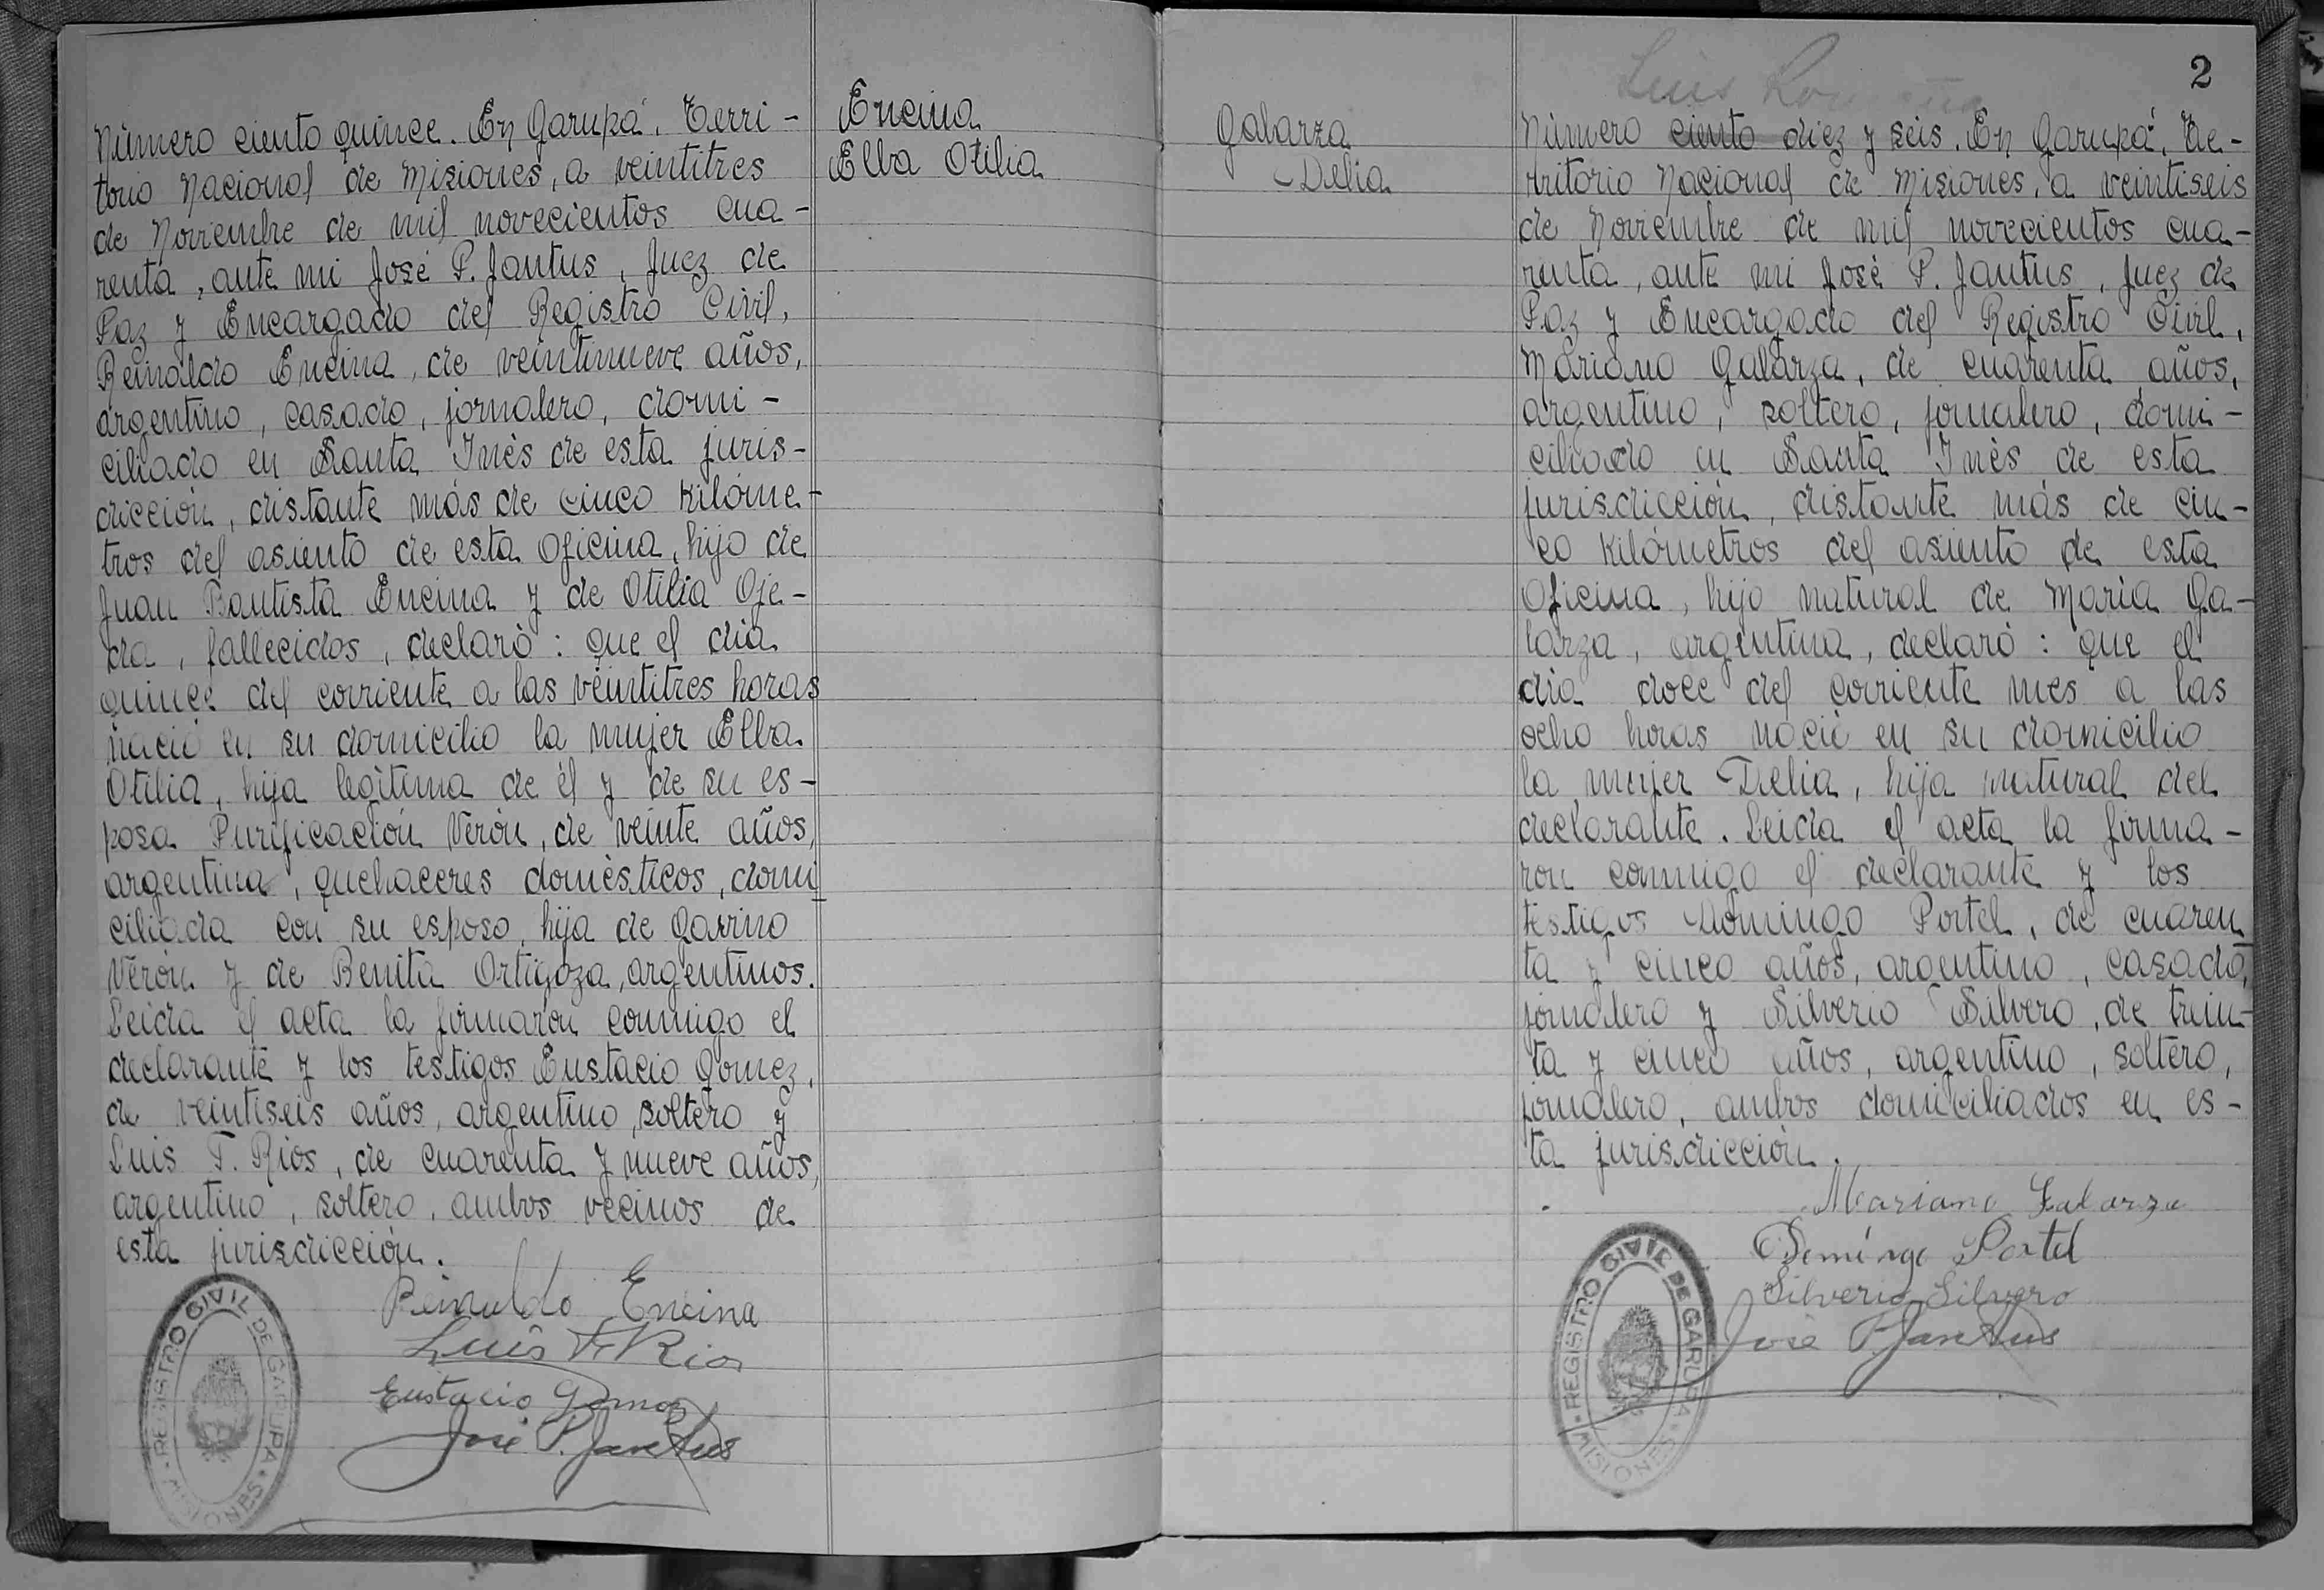 Número ciento quince. En Garupá, Terri-
torio Nacional de Misiones, a veintitres
de Noviembre de mil novecientos cua-
renta, ante mi José P. Jantus, Juez de
Paz y Encargado del Registro Civil,
Reinaldo Encina, de veintinueve años,
argentino, casado, jornalero, domi-
ciliado en Santa Inès de esta juris-
dicción, distante más de cinco kilóme-
tros del asiento de esta Oficina, hijo de
Juan Bautista Encina y de Otilia Oje-
da, fallecidos, declaró: que el dia
quince del corriente a las veintitres horas
nació en su domicilio la mujer Elba
Otilia, hija legìtima de èl y de su es-
posa Purificación Verón, de veinte años,
argentina, quehaceres domèsticos, domi-
ciliada con su esposo, hija de Gavino
Verón y de Benita Ortigoza, argentinos.
Leida el acta la firmaron conmigo el
declarante y los testigos Eustacio Gomez,
de veintiseis años, argentino, soltero y
Luis F. Rios, de cuarenta y nueve años,
argentino, soltero, ambos vecinos de
esta jurisdicción.
Reinaldo Encina
Luis F. Rios
Eustacio Gomez
José P. Jantus
REGISTRO CIVIL DE GARUPA
MISIONES
Encina
Elba Otilia
Galarza
Delia
2
Luis
Número ciento diez y seis. En Garupá, Te-
rritorio Nacional de Misiones, a veintiseis
de Noviembre de mil novecientos cua-
renta, ante mi José P. Jantus, Juez de
Paz y Encargado del Registro Civil,
Mariano Galarza, de cuarenta años,
argentino, soltero, jornalero, domi-
ciliado en Santa Inès de esta
jurisdicción, distante más de cin-
co kilómetros del asiento de esta
Oficina, hijo natural de Maria Ga-
larza, argentina, declaró: que el
dia doce del corriente mes a las
ocho horas nació en su domicilio
la mujer Delia, hija natural del
declarante. Leida el acta la firma-
ron conmigo el declarante y los
testigos Domingo Portel, de cuaren
ta y cinco años, argentino, casado,
jornalero y Silverio Silvero, de trein-
ta y cinco años, argentino, soltero,
jornalero, ambos domiciliados en es-
ta jurisdicción.
Mariano Galarza
Domingo Portel
Silverio Silvero
José P. Jantus
REGISTRO CIVIL DE GARUPA
MISIONES